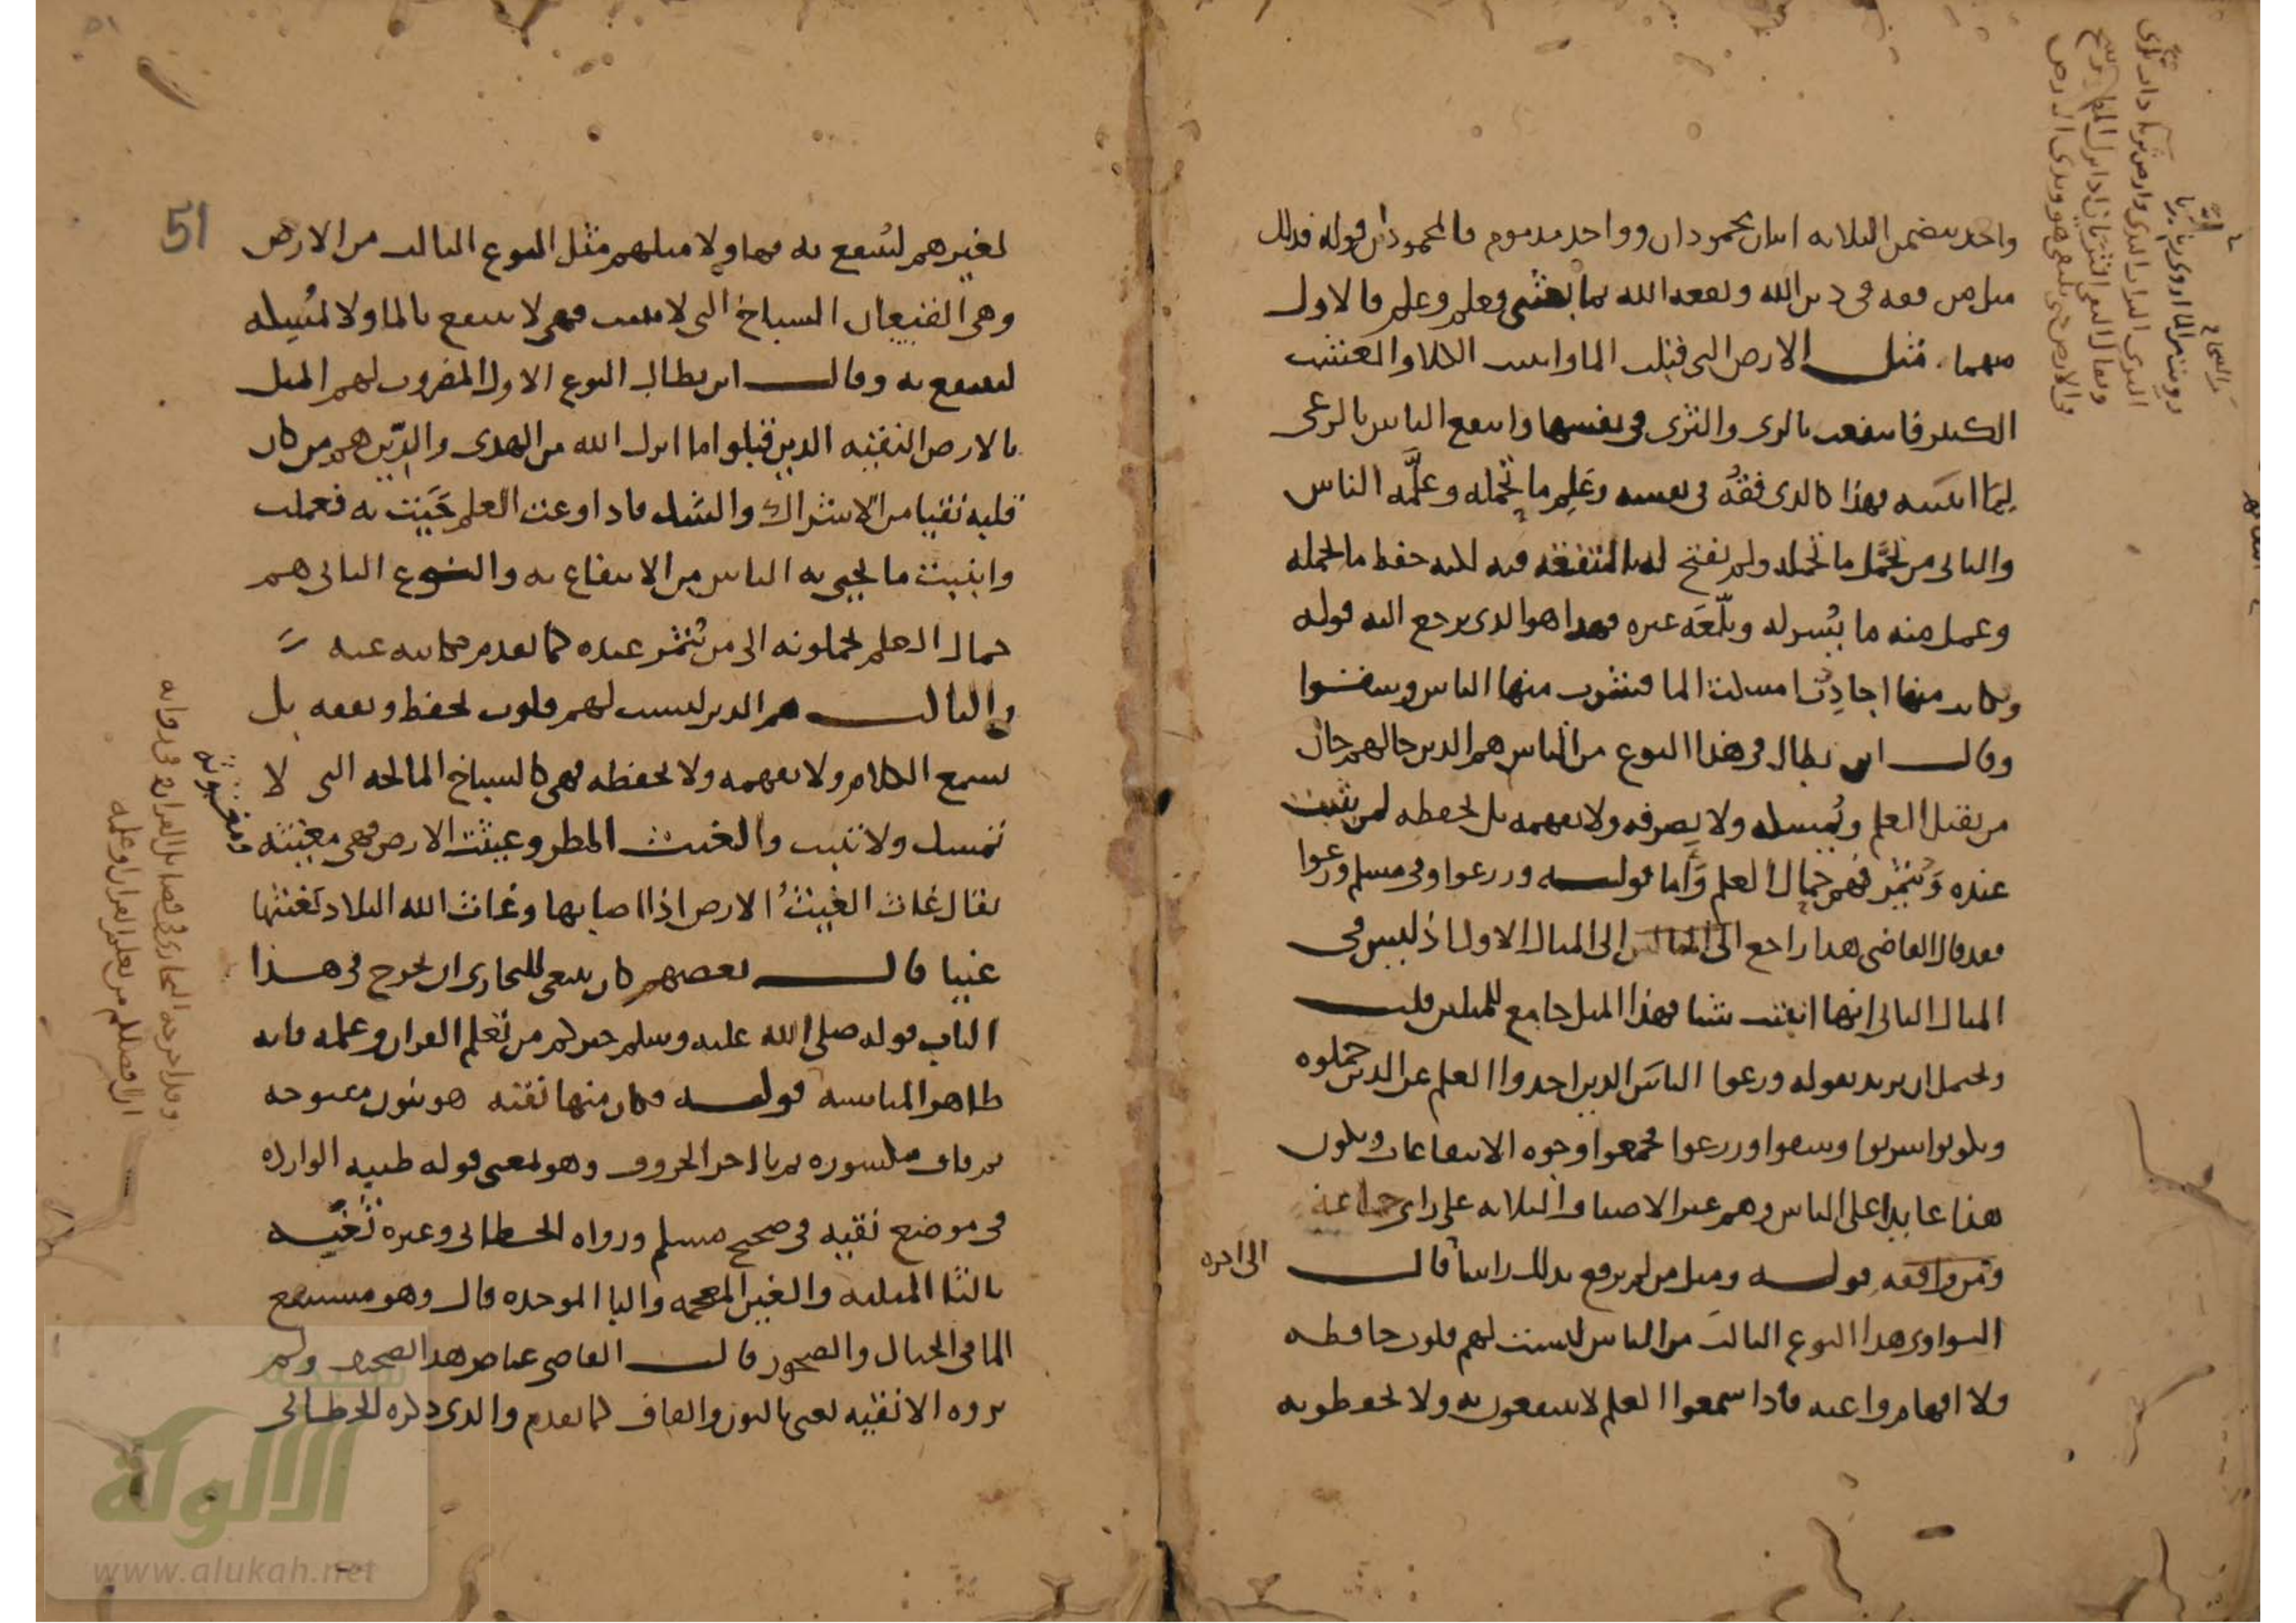 واحد يتضمن الثلاثة اثنان محمودان وواحد مذموم فالمحمودان قوله فذلك
مثل من فقه في دين الله ونفعه الله بما بعثني فعلم وعلم فالاول
منهما مثل الارض التي قبلت الما وانبتت الكلا والعشب
الكثير فانتفعت بالرى والثرى في نفسها وانتفع الناس بالرعى
لما انبتته فهذا كالذى فقه في نفسه وعلم ما تحمله وعلمه الناس
والثاني من تحمل ما تحمله ولم يفتح له بالتفقه فيه لكنه حفظ ما تحمله
وعمل منه ما يسر له وبلغه غيره فهذا هو الذى يرجع اليه قوله
وكانت منها اجاذب امسكت الما فشرب منها الناس وسقوا
وقال ابن بطال في هذا النوع من الناس هم الذين حالهم حال
من يقبل العلم ويمسكه ولا يصرفه ولا يفهمه بل يحفظه لمن يثبت
عنده ويثمر فهم حمال العلم واما قوله وزرعوا وفي مسلم ورعوا
فقد قال القاضي هذا راجع الى المثال الاول اذ ليس في
المثال الثاني انها انبتت شيا فهذا المثل جامع للمثلين قلت
ويحتمل ان يريد بقوله ورعوا الناس الذين اخذوا العلم عن الذين حملوه
ويكونوا شربوا وسقوا وزرعوا فجمعوا وجوه الانتفاعات ويكون
هذا عايدا على الناس وهم غير الاصناف الثلاثة على راى جماعة
ومن وافقه قوله ومثل من لم يرفع بذلك راسا قال
الى اخره
النواوى هذا النوع الثالث من الناس ليست لهم قلوب حافظه
ولا افهام واعيه فاذا سمعوا العلم لا ينتفعون به ولا يحفظونه
51
لغيرهم لينتفع به فهاولا مثلهم مثل النوع الثالث من الارض
وهي القيعان السباخ التي لا تنبت فهي لا تنتفع بالما ولا تمسكه
لينتفع به وقال ابن بطال النوع الاول المضروب لهم المثل
بالارض النقيه الذين قبلوا ما انزل الله من الهدى والدين هم من كان
قلبه نقيا من الاشراك والشك فاذا وعت العلم حييت به فعملت
وانبتت ما يحيى به الناس من الانتفاع به والنوع الثاني هم
حمال العلم يحملونه الى من يثمر عنده كما تقدم حكايته عنه
والثالث هم الذين ليست لهم قلوب تحفظ وتفقه بل
تسمع الكلام ولا تفهمه ولا تحفظه فهي كالسباخ المالحه التي لا
تمسك ولا تنبت والغيث المطر وغيثت الارض فهي مغيثه
ومغيوثه
يقال غاث الغيث الارض اذا اصابها وغاث الله البلاد يغيثها
غيثا قال بعضهم كان ينبغي للبخارى ان يخرج في هذا
الباب قوله صلى الله عليه وسلم خيركم من تعلم القران وعلمه فانه
ظاهر المناسبه قوله فكان منها نقيه هو بنون مفتوحه
ثم قاف مكسوره ثم يا اخر الحروف وهو بمعنى قوله طيبه الوارده
في موضع نقيه في صحيح مسلم ورواه الخطابي وغيره ثغبه
بالثا المثلثه والغين المعجمه والبا الموحده قال وهو مستنقع
الما في الجبال والصخور قال القاضي عياض هذا تصحيف ولم
يروه الا نقيه يعني بالنون والقاف كما تقدم والذى ذكره الخطابي
وقد اخرجه البخارى في فضايل القران في روايه
ان افضلكم من تعلم القران وعلمه
الالوكة
www.alukah.net